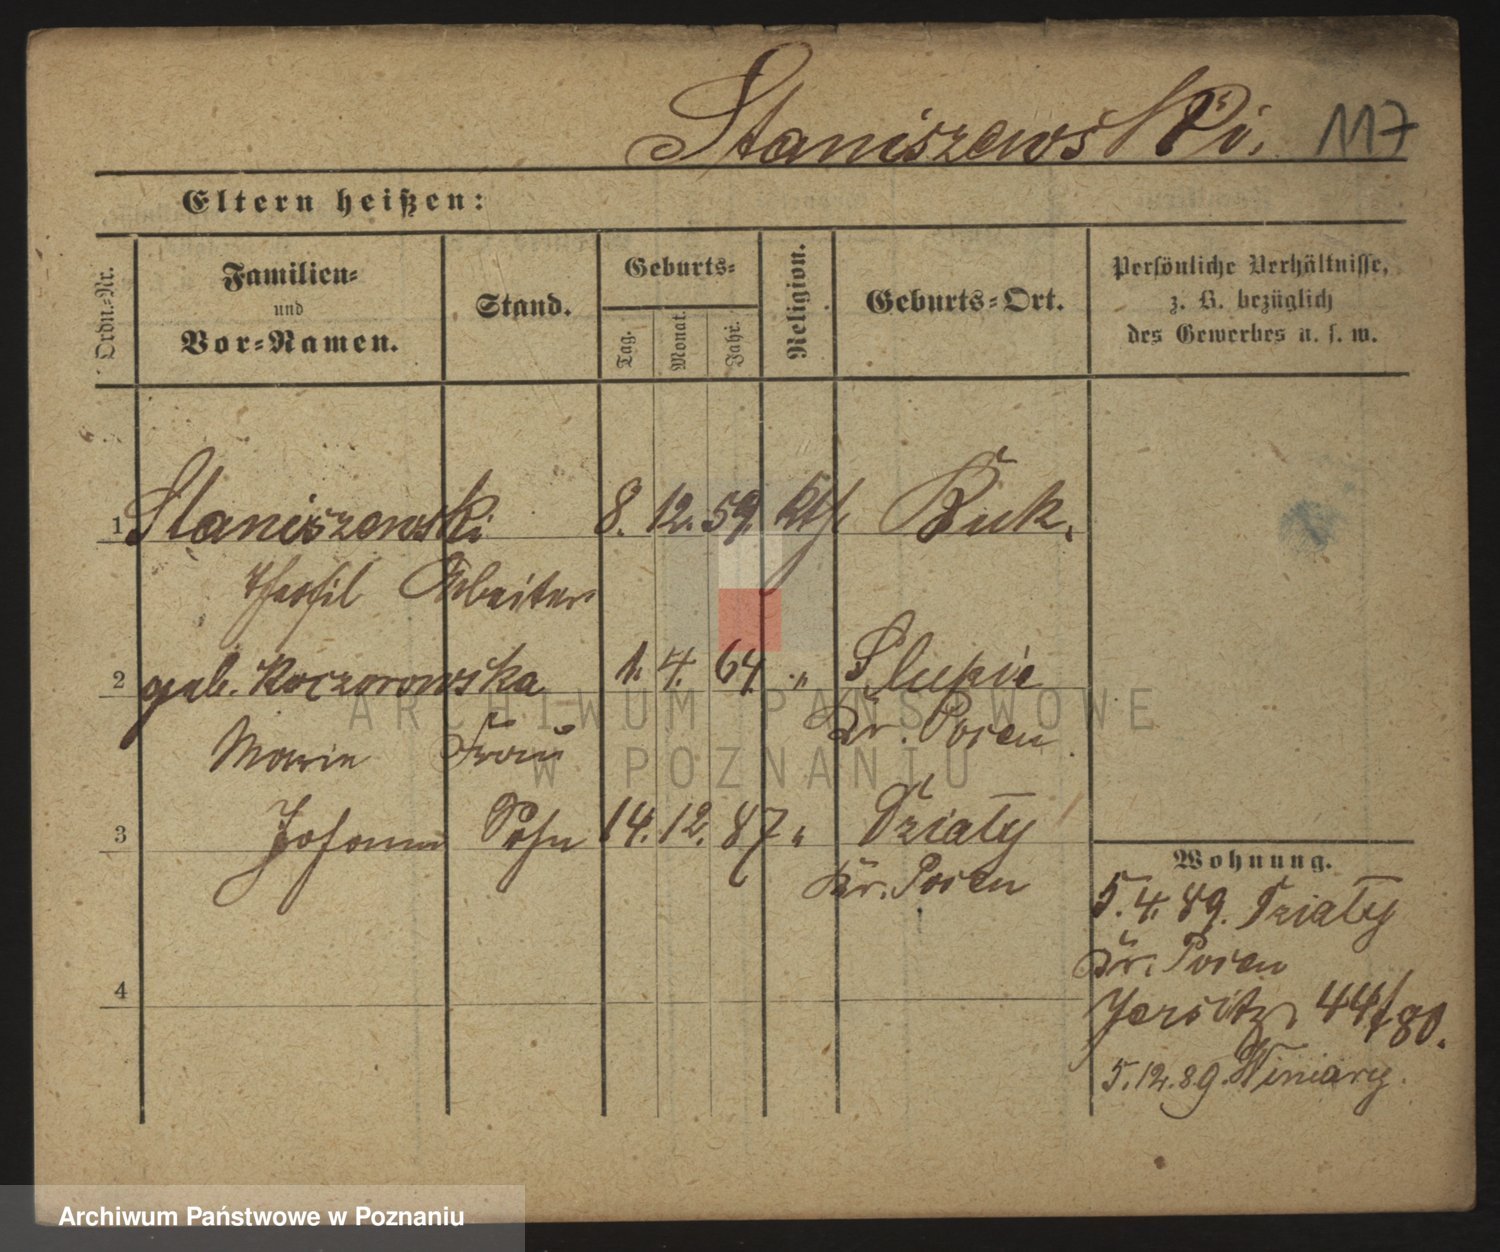 Staniszewski. 117
Eltern heißen:
Ordn.-Nr.
Familien-
und
Vor-Namen.
Stand.
Geburts-
Tag.
Monat.
Jahr.
Religion.
Geburts-Ort.
Persönliche Verhältnisse,
z. B. bezüglich
des Gewerbes u. s. w.
1 Staniszewski 8. 12. 59. kth. Buk.
Theofil Arbeiter
2 geb. Koczorowska 1. 4. 64. " Slupie
Kr. Posen
Marie Frau
3 Johann Sohn 14. 12. 87 " Tziały
Kr. Posen
4
Wohnung.
5.4.89. Tziały
Kr. Posen
Jersitz 44/80.
5.12.89. Winiary.
ARCHIWUM PAŃSTWOWE
W POZNANIU
Archiwum Państwowe w Poznaniu